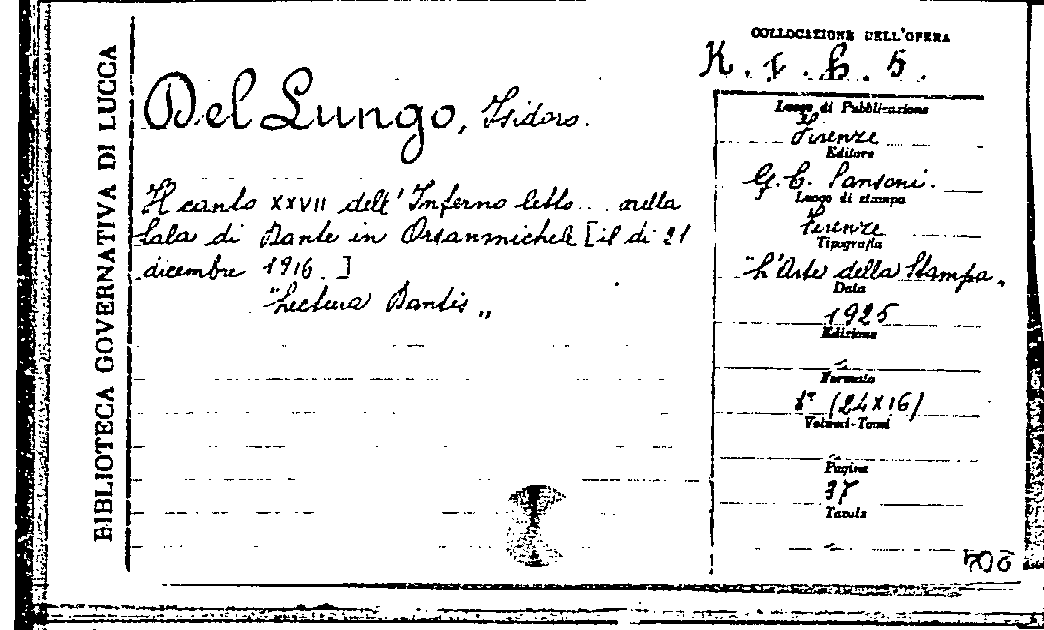 BIBLIOTECA GOVERNATIVA DI LUCCA
Del Lungo, Isidoro.
Il canto XXVII dell'Inferno letto... nella
Sala di Dante in Orsanmichele [il dì 21
dicembre 1916.]
"Lectura Dantis„
COLLOCAZIONE DELL'OPERA
Luogo di Pubblicazione
Firenze
Editore
G. C. Sansoni.
Luogo di stampa
Firenze
Tipografia
"L'Arte della Stampa„
Data
1925
Edizione
-
Formato
8° (24x16)
Volumi-Tomi
-
Pagine
37
Tavole
-